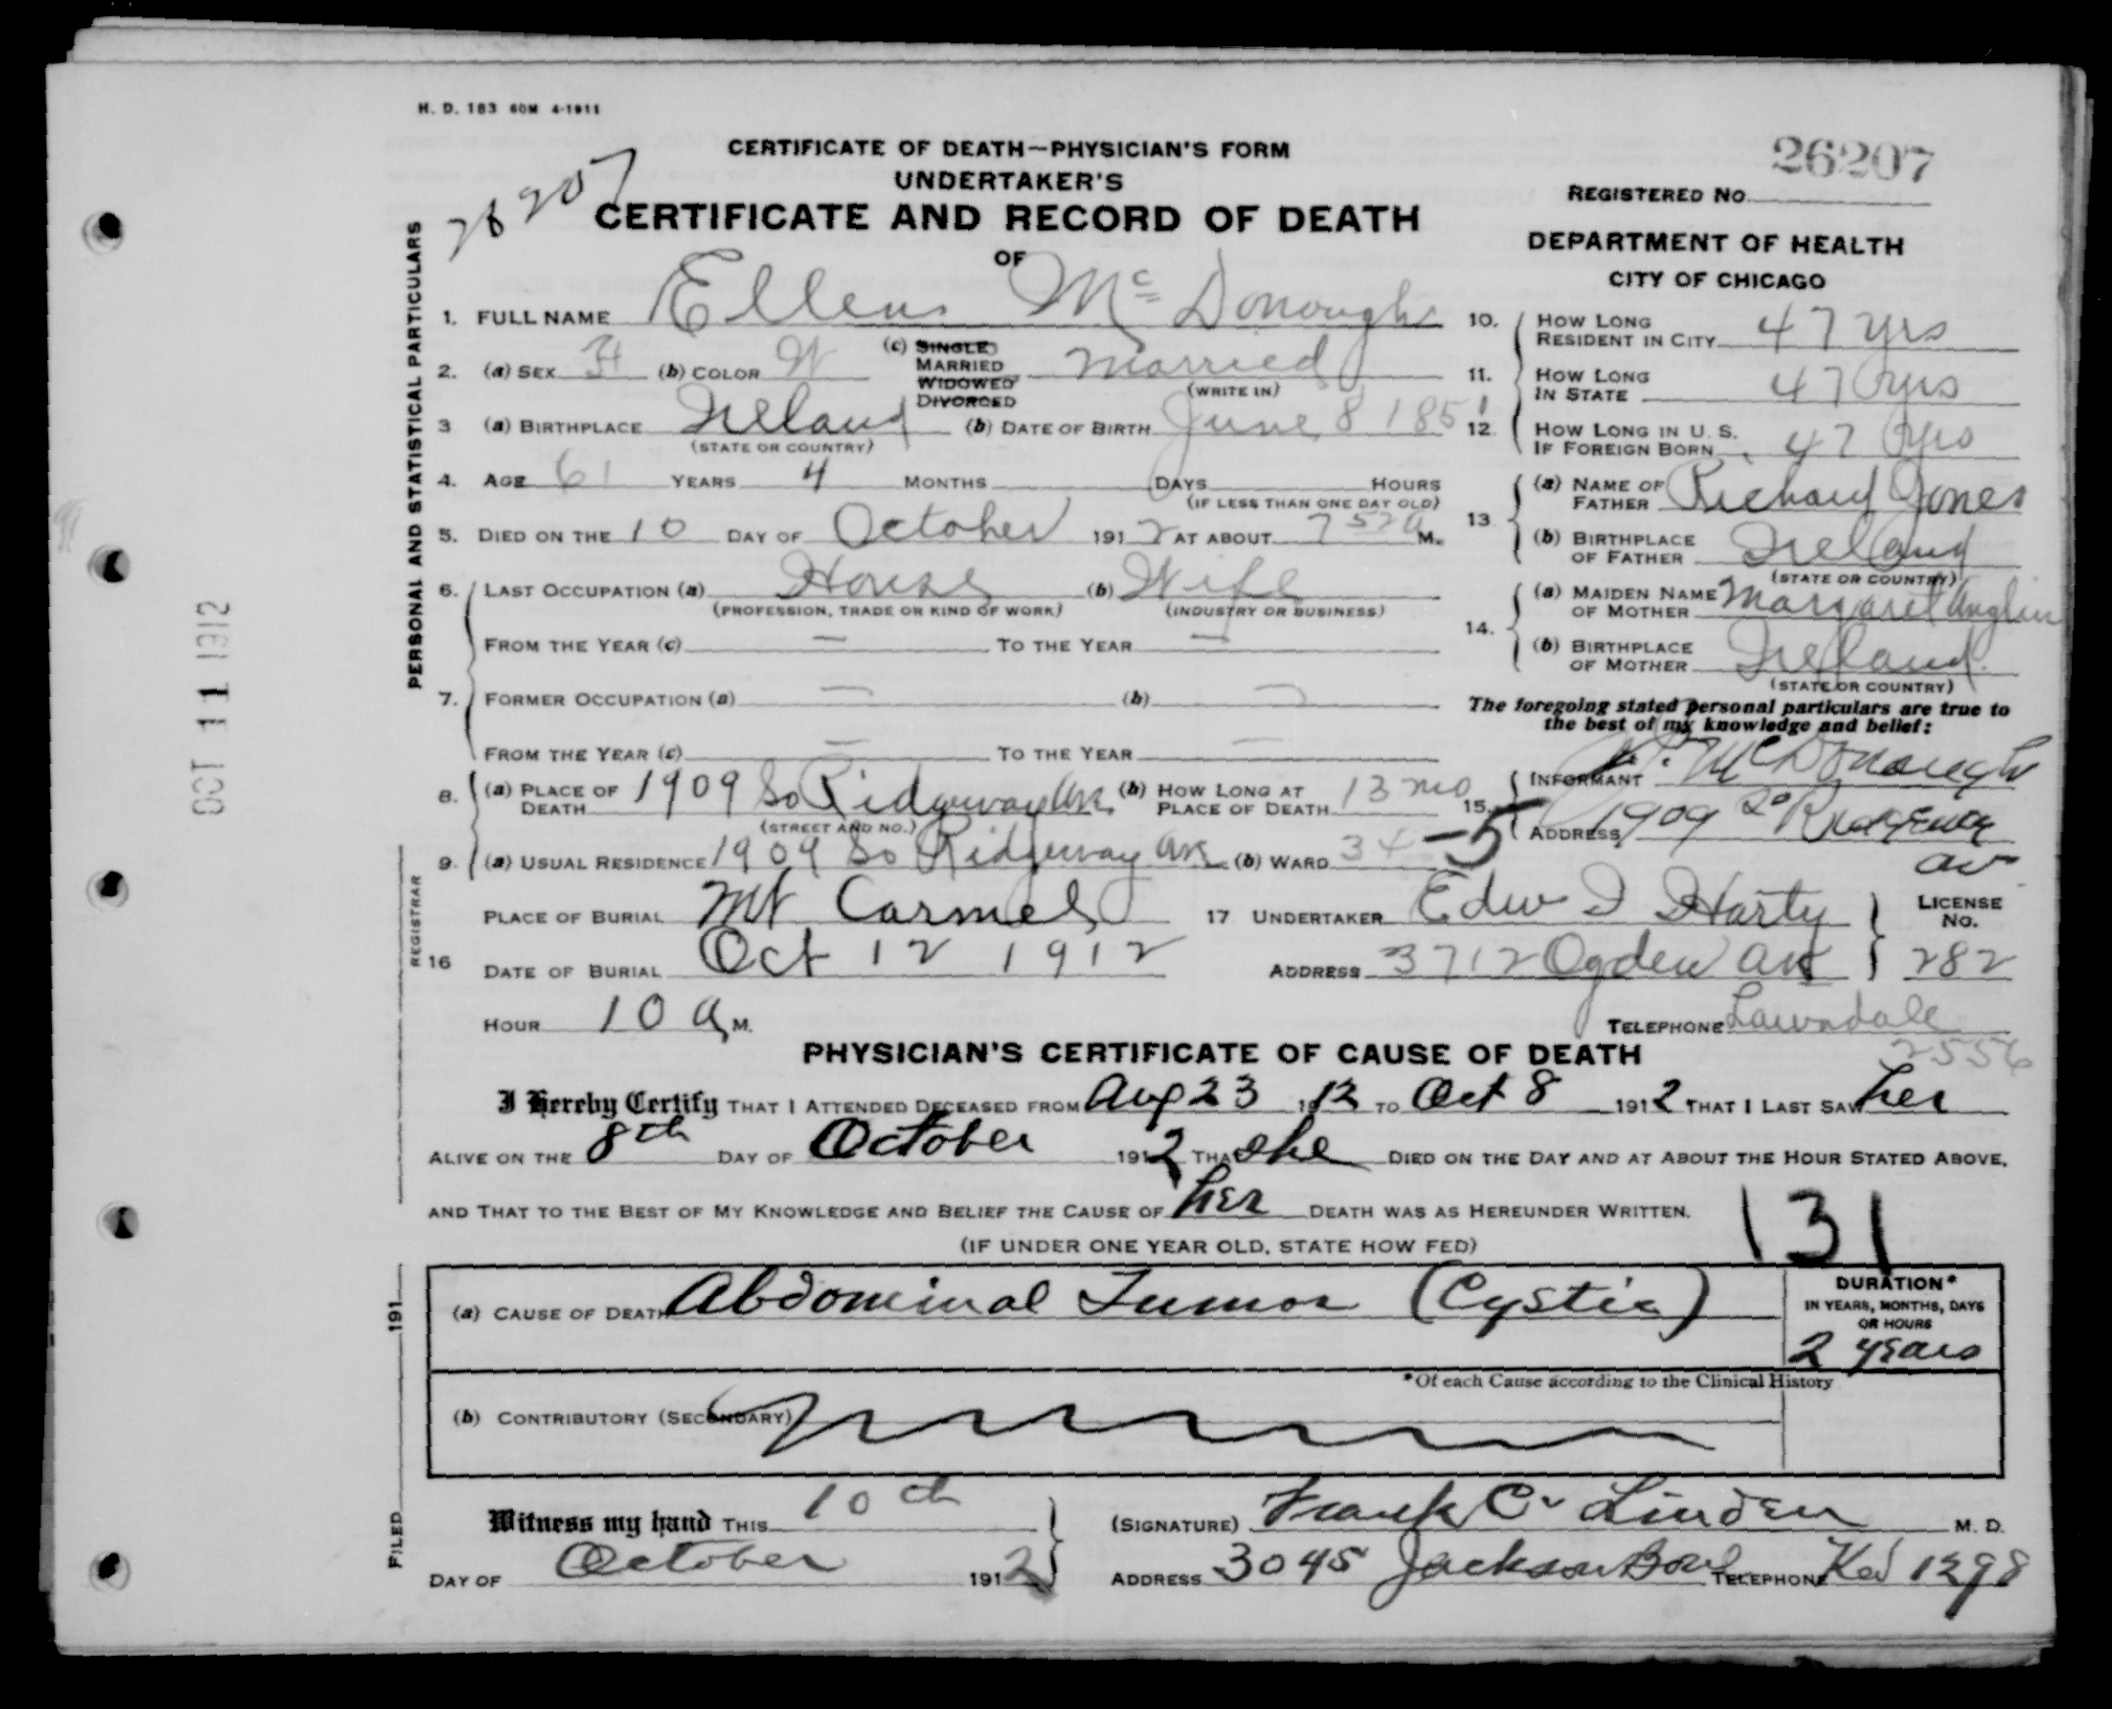 H. D. 183 60M 4-1911
CERTIFICATE OF DEATH—PHYSICIAN'S FORM
26207
26207
UNDERTAKER'S
REGISTERED NO
CERTIFICATE AND RECORD OF DEATH
DEPARTMENT OF HEALTH
CITY OF CHICAGO
OF
PERSONAL AND STATISTICAL PARTICULARS
1. FULL NAME Ellen Mc Donough
2. (a) SEX F (b) COLOR W (c) SINGLE MARRIED WIDOWED DIVORCED Married
(WRITE IN)
3 (a) BIRTHPLACE Ireland (b) DATE OF BIRTH June 8 1851
(STATE OR COUNTRY)
4. AGE 61 YEARS 4 MONTHS DAYS HOURS
(IF LESS THAN ONE DAY OLD)
5. DIED ON THE 10 DAY OF October 1912 AT ABOUT 7 52 a M.
6. LAST OCCUPATION (a) House (b) Wife
(PROFESSION, TRADE OR KIND OF WORK) (INDUSTRY OR BUSINESS)
FROM THE YEAR (c) — TO THE YEAR —
7. FORMER OCCUPATION (a) — (b) —
FROM THE YEAR (c) — TO THE YEAR —
8. (a) PLACE OF DEATH 1909 So Ridgeway Ave (b) HOW LONG AT PLACE OF DEATH 13 mo
(STREET AND NO.)
9. (a) USUAL RESIDENCE 1909 So Ridgeway Ave (b) WARD 34 -5
10. HOW LONG RESIDENT IN CITY 47 yrs
11. HOW LONG IN STATE 47 yrs
12. HOW LONG IN U. S. IF FOREIGN BORN 47 yrs
13 (a) NAME OF FATHER Richard Jones
(b) BIRTHPLACE OF FATHER Ireland
(STATE OR COUNTRY)
14. (a) MAIDEN NAME OF MOTHER Margaret Anglin
(b) BIRTHPLACE OF MOTHER Ireland
(STATE OR COUNTRY)
The foregoing stated personal particulars are true to
the best of my knowledge and belief:
15. INFORMANT McDonough
ADDRESS 1909 So Ridgeway
av
OCT 11 1912
REGISTRAR
16 PLACE OF BURIAL Mt Carmel
DATE OF BURIAL Oct 12 1912
HOUR 10 a M.
17 UNDERTAKER Edw I Harty
LICENSE NO.
ADDRESS 3712 Ogden Ave 282
TELEPHONE Lawndale
2556
PHYSICIAN'S CERTIFICATE OF CAUSE OF DEATH
I Hereby Certify THAT I ATTENDED DECEASED FROM Aug 23 1912 TO Oct 8 1912 THAT I LAST SAW her
ALIVE ON THE 8th DAY OF October 1912 THAT she DIED ON THE DAY AND AT ABOUT THE HOUR STATED ABOVE,
AND THAT TO THE BEST OF MY KNOWLEDGE AND BELIEF THE CAUSE OF her DEATH WAS AS HEREUNDER WRITTEN.
131
(IF UNDER ONE YEAR OLD, STATE HOW FED)
(a) CAUSE OF DEATH Abdominal Tumor (Cystic)
DURATION*
IN YEARS, MONTHS, DAYS
OR HOURS
2 years
*Of each Cause according to the Clinical History
(b) CONTRIBUTORY (SECONDARY)
FILED 191
Witness my hand THIS 10th
DAY OF October 1912
(SIGNATURE) Frank C. Linden M. D.
ADDRESS 3045 Jackson Bovl TELEPHONE Ked 1298